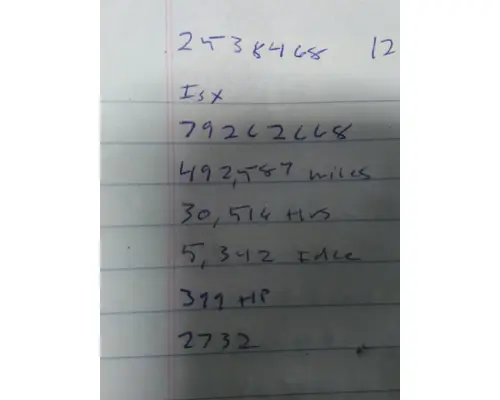 2538468 12
Isx
79262668
492,587 miles
30,514 Hrs
5,342 Idle
399 HP
2732